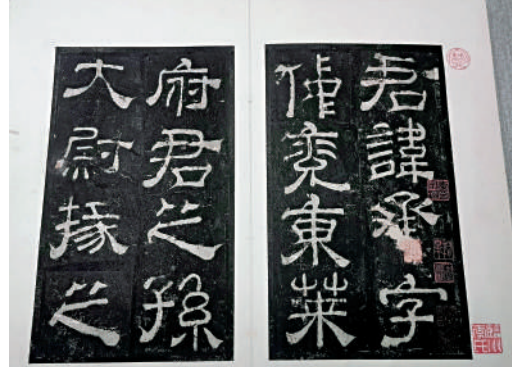 君諱承字
仲兗東萊
府君之孫
大尉掾之